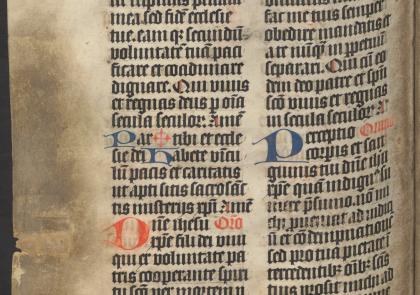 mea. sed fidē ecclesie
tue. eamq; secūdū
voluntatē tuā paci
ficare et coadunare
dignare. Qui vivis
et regnas deus p oīa
secula seculoꝝ. Amē
Pax ✠ tibi et eccle
sie dei. Habete vīcu
lū pacis et caritatis
ut apti sitis sacrosāc
tis misterijs xp̄i. Amē
Dn̄e ihesu Orō
xp̄e fili dei vivi
qui ex voluntate pa
tris cooperante spiri
tu scō per mortem
fac me tuis semper
obedire mandatis et
a te nūq̄ in ꝑpetuū
separari. Qui cū eo
dem deo patre et spū
scō vivis et regnas
in secula seculoꝝ. A
Perceptio
corꝑis et san
guinis tui dn̄e ihu
xp̄e quā indignꝰ su
mere p̄sumo. nō mi
chi ꝓveniat ad iudici
ū et cōdempnationē
sed pro tua pietate ī
tercedentibꝰ oībꝰ scīs
tuis prosit michi ad